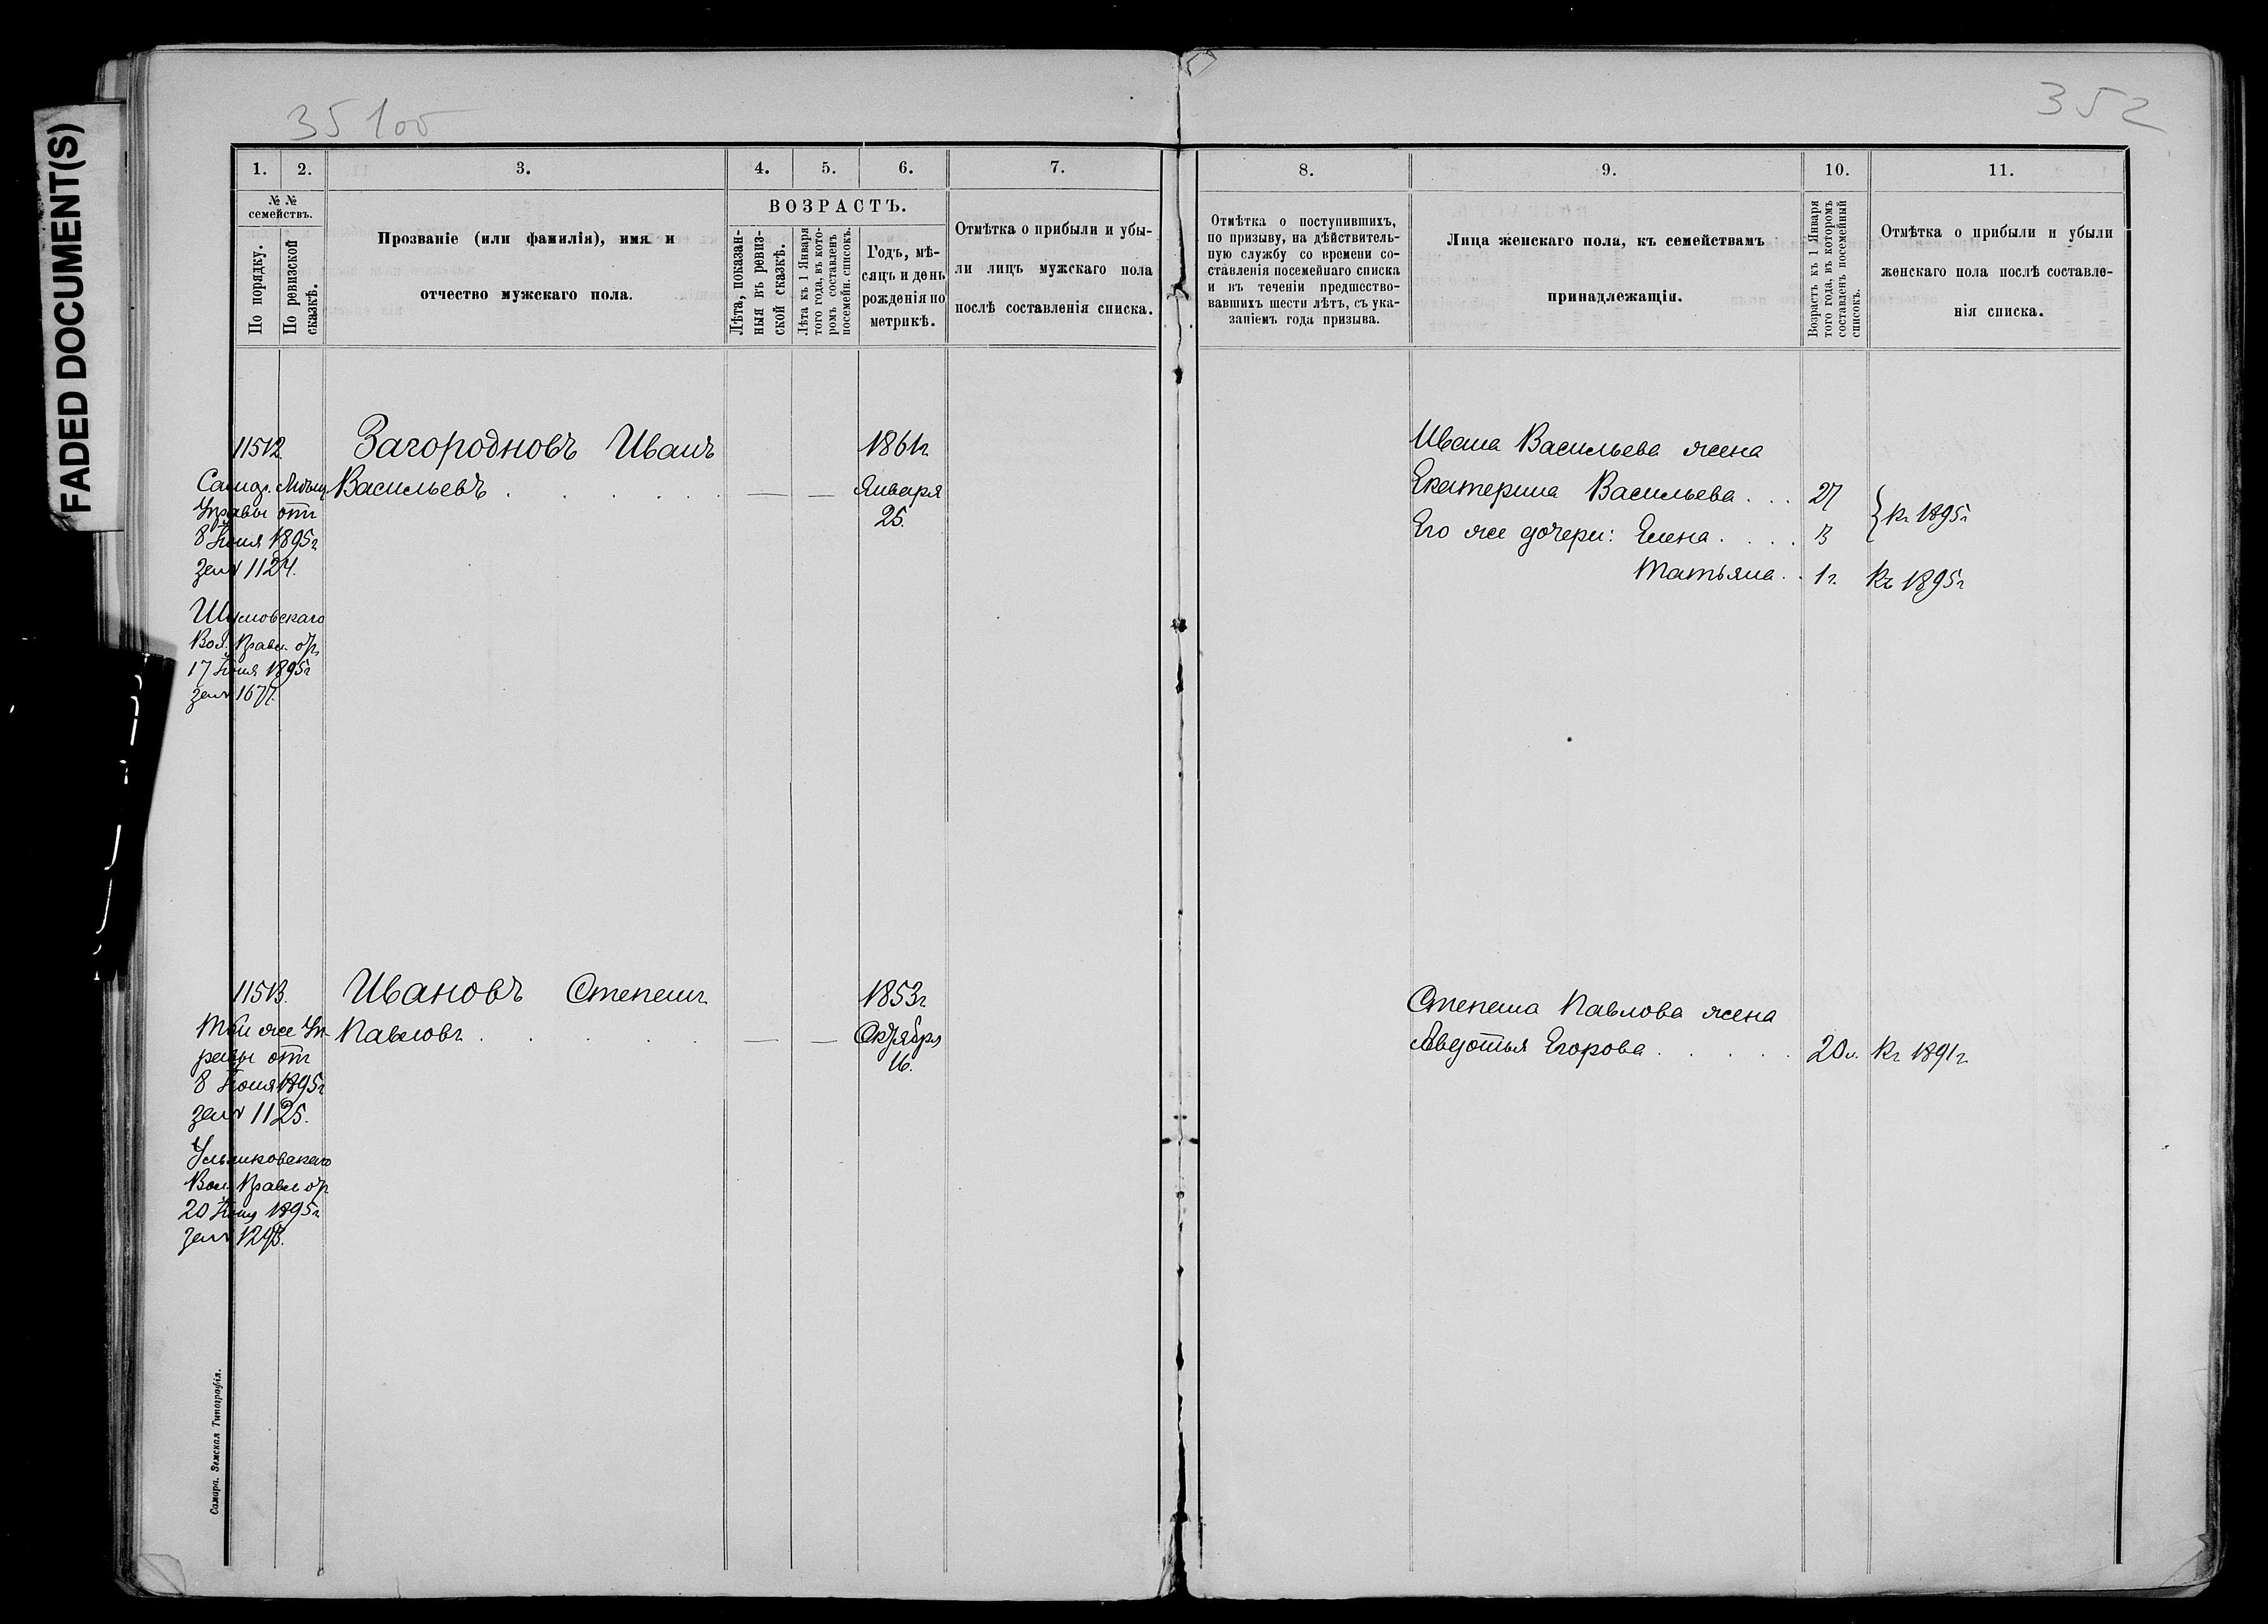 FADED DOCUMENT(S)
35100
352
1.
2.
3.
4.
5.
6.
7.
№ №
семействъ.
По порядку.
По ревизской
сказкѣ.
Прозваніе (или фамилія), имя и
отчество мужскаго пола.
ВОЗРАСТЪ.
Лѣта, показан-
ныя въ ревиз-
ской сказкѣ.
Лѣта къ 1 Января
того года, въ кото-
ромъ составленъ
посемейн. списокъ.
Годъ, мѣ-
сяцъ и день
рожденія по
метрикѣ.
Отмѣтка о прибыли и убы-
ли лицъ мужскаго пола
послѣ составленія списка.
11512
Загородновъ Иванъ
1861г
Самар. Мѣщ.
Васильевъ . . . . . . — — Января
Управы отъ
25.
8 Іюня 1895г
за № 1124.
Шумовскаго
Вол. Правл. отъ
17 Іюня 1895г
за № 1677.
11513.
Ивановъ Степанъ
1853г
Той же Уп-
Павловъ . . . . . — — Октября
равы отъ
16.
8 Іюня 1895г
за № 1125.
Вол. Правл отъ
20 Іюня 1895г
за № 1293.
Самара. Земская Типографія.
8.
9.
10.
11.
Отмѣтка о поступившихъ,
по призыву, на дѣйствитель-
ную службу со времени со-
ставленія посемейнаго списка
и въ теченіи предшество-
вавшихъ шести лѣтъ, съ ука-
заніемъ года призыва.
Лица женскаго пола, къ семействамъ
принадлежащія.
Возрастъ къ 1 Января
того года, въ которомъ
составленъ посемейный
списокъ.
Отмѣтка о прибыли и убыли
женскаго пола послѣ составле-
нія списка.
Ивана Васильева жена
Екатерина Васильева . . . 27
} Къ 1895г
Его же дочери: Елена . . . . 3
Татьяна . . 1г. Къ 1895г
Степана Павлова жена
Авдотья Егорова . . . . . 20л. Къ 1891г